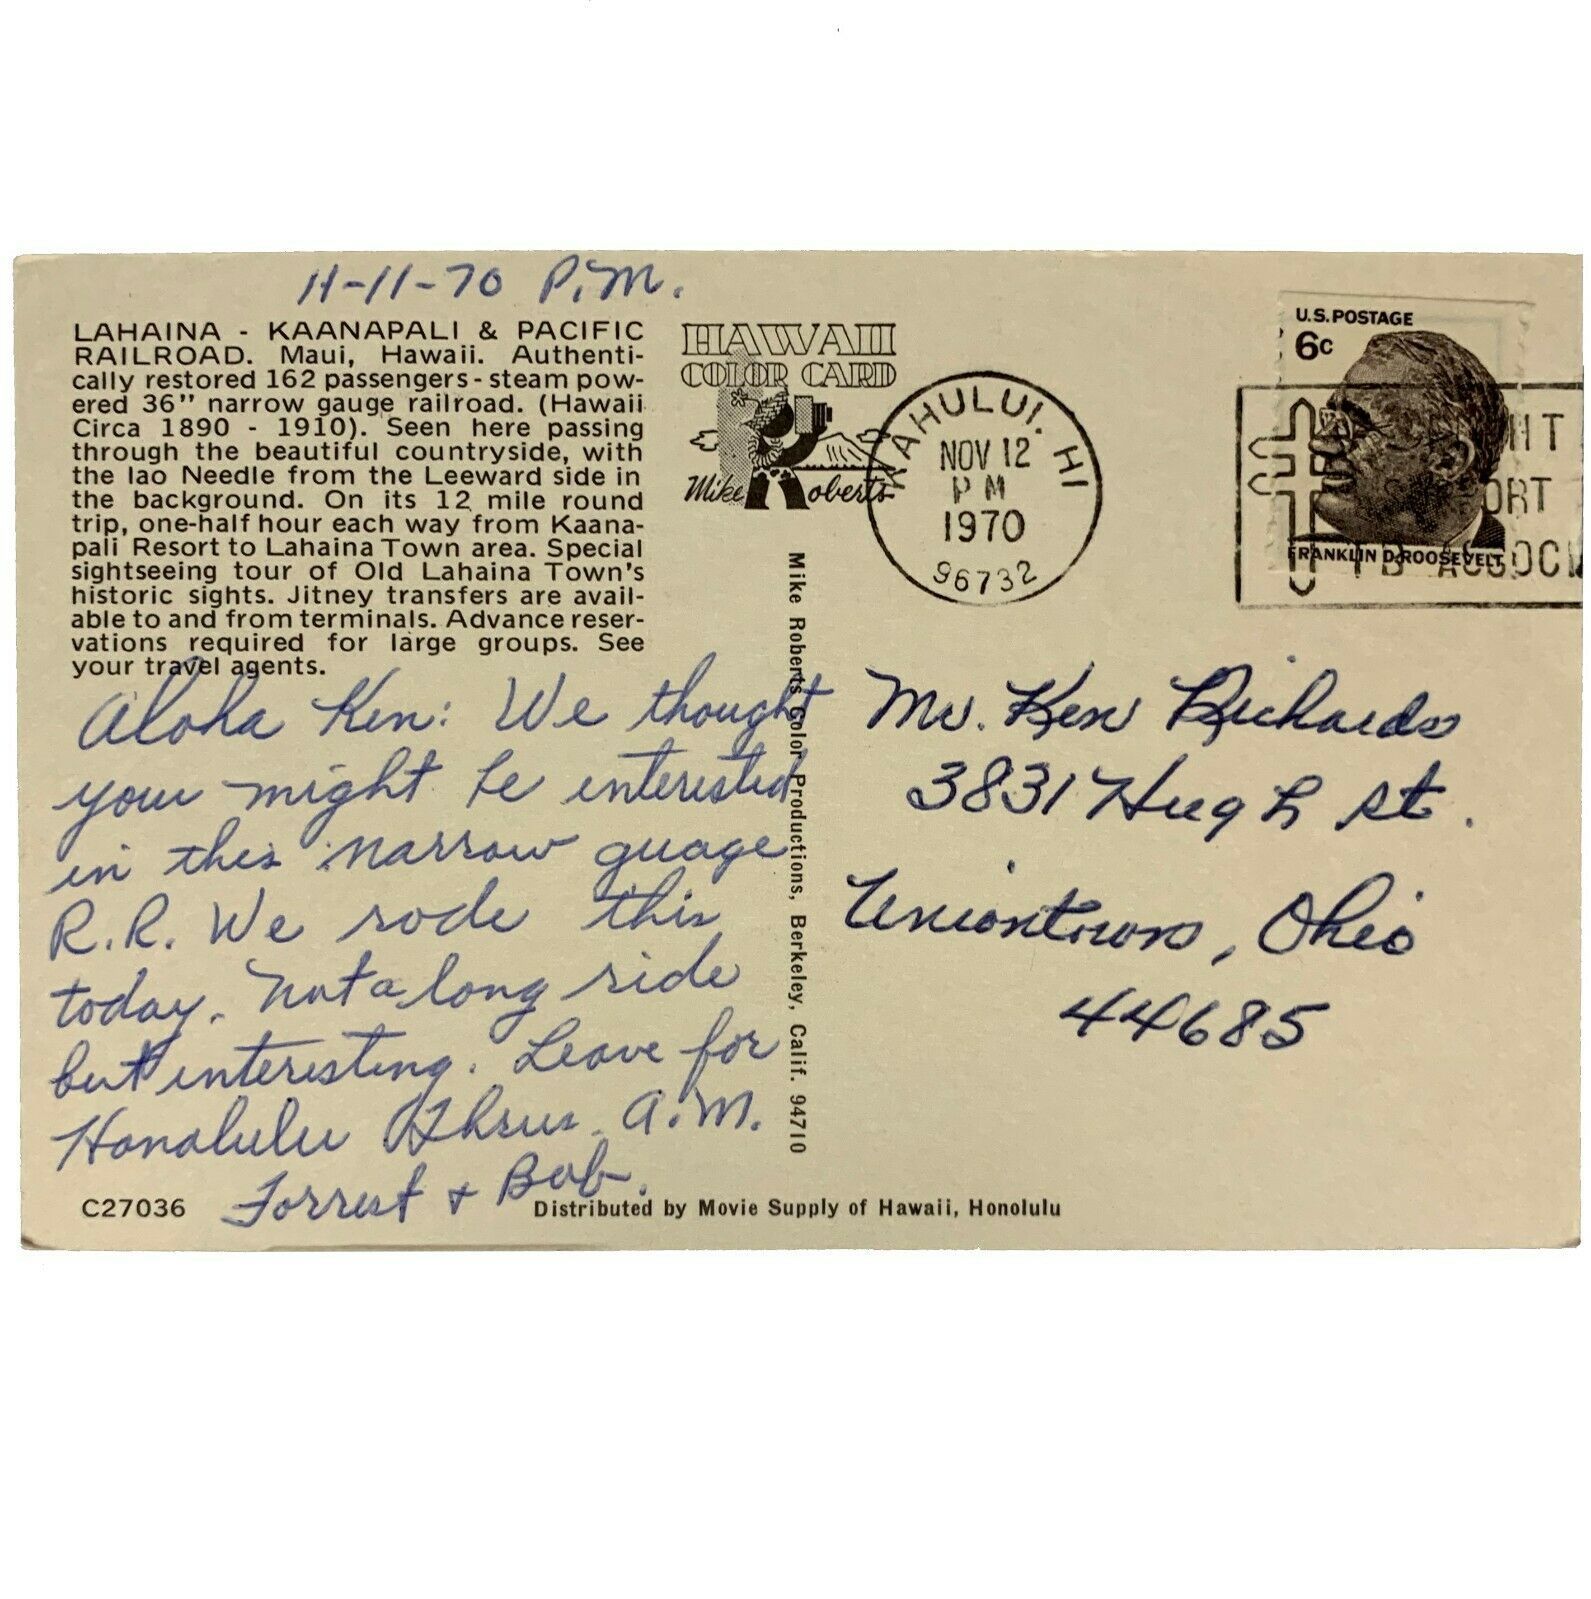 11-11-70 P.M.
LAHAINA - KAANAPALI & PACIFIC
RAILROAD. Maui, Hawaii. Authenti-
cally restored 162 passengers - steam pow-
ered 36" narrow gauge railroad. (Hawaii
Circa 1890 - 1910). Seen here passing
through the beautiful countryside, with
the Iao Needle from the Leeward side in
the background. On its 12 mile round
trip, one-half hour each way from Kaana-
pali Resort to Lahaina Town area. Special
sightseeing tour of Old Lahaina Town's
historic sights. Jitney transfers are avail-
able to and from terminals. Advance reser-
vations required for large groups. See
your travel agents.
Aloha Ken: We thought
you might be interested
in this narrow guage
R.R. We rode this
today. Not a long ride
but interesting. Leave for
Honolulu Thurs. A.M.
Forrest & Bob.
C27036
Distributed by Movie Supply of Hawaii, Honolulu
HAWAII
COLOR CARD
Mike Roberts
Mike Roberts Color Productions, Berkeley, Calif. 94710
KAHULUI, HI
NOV 12
PM
1970
96732
U.S. POSTAGE
6c
FRANKLIN D. ROOSEVELT
TB ASSOCI
Mr. Ken Richards
3831 Hugh St.
Uniontown, Ohio
44685